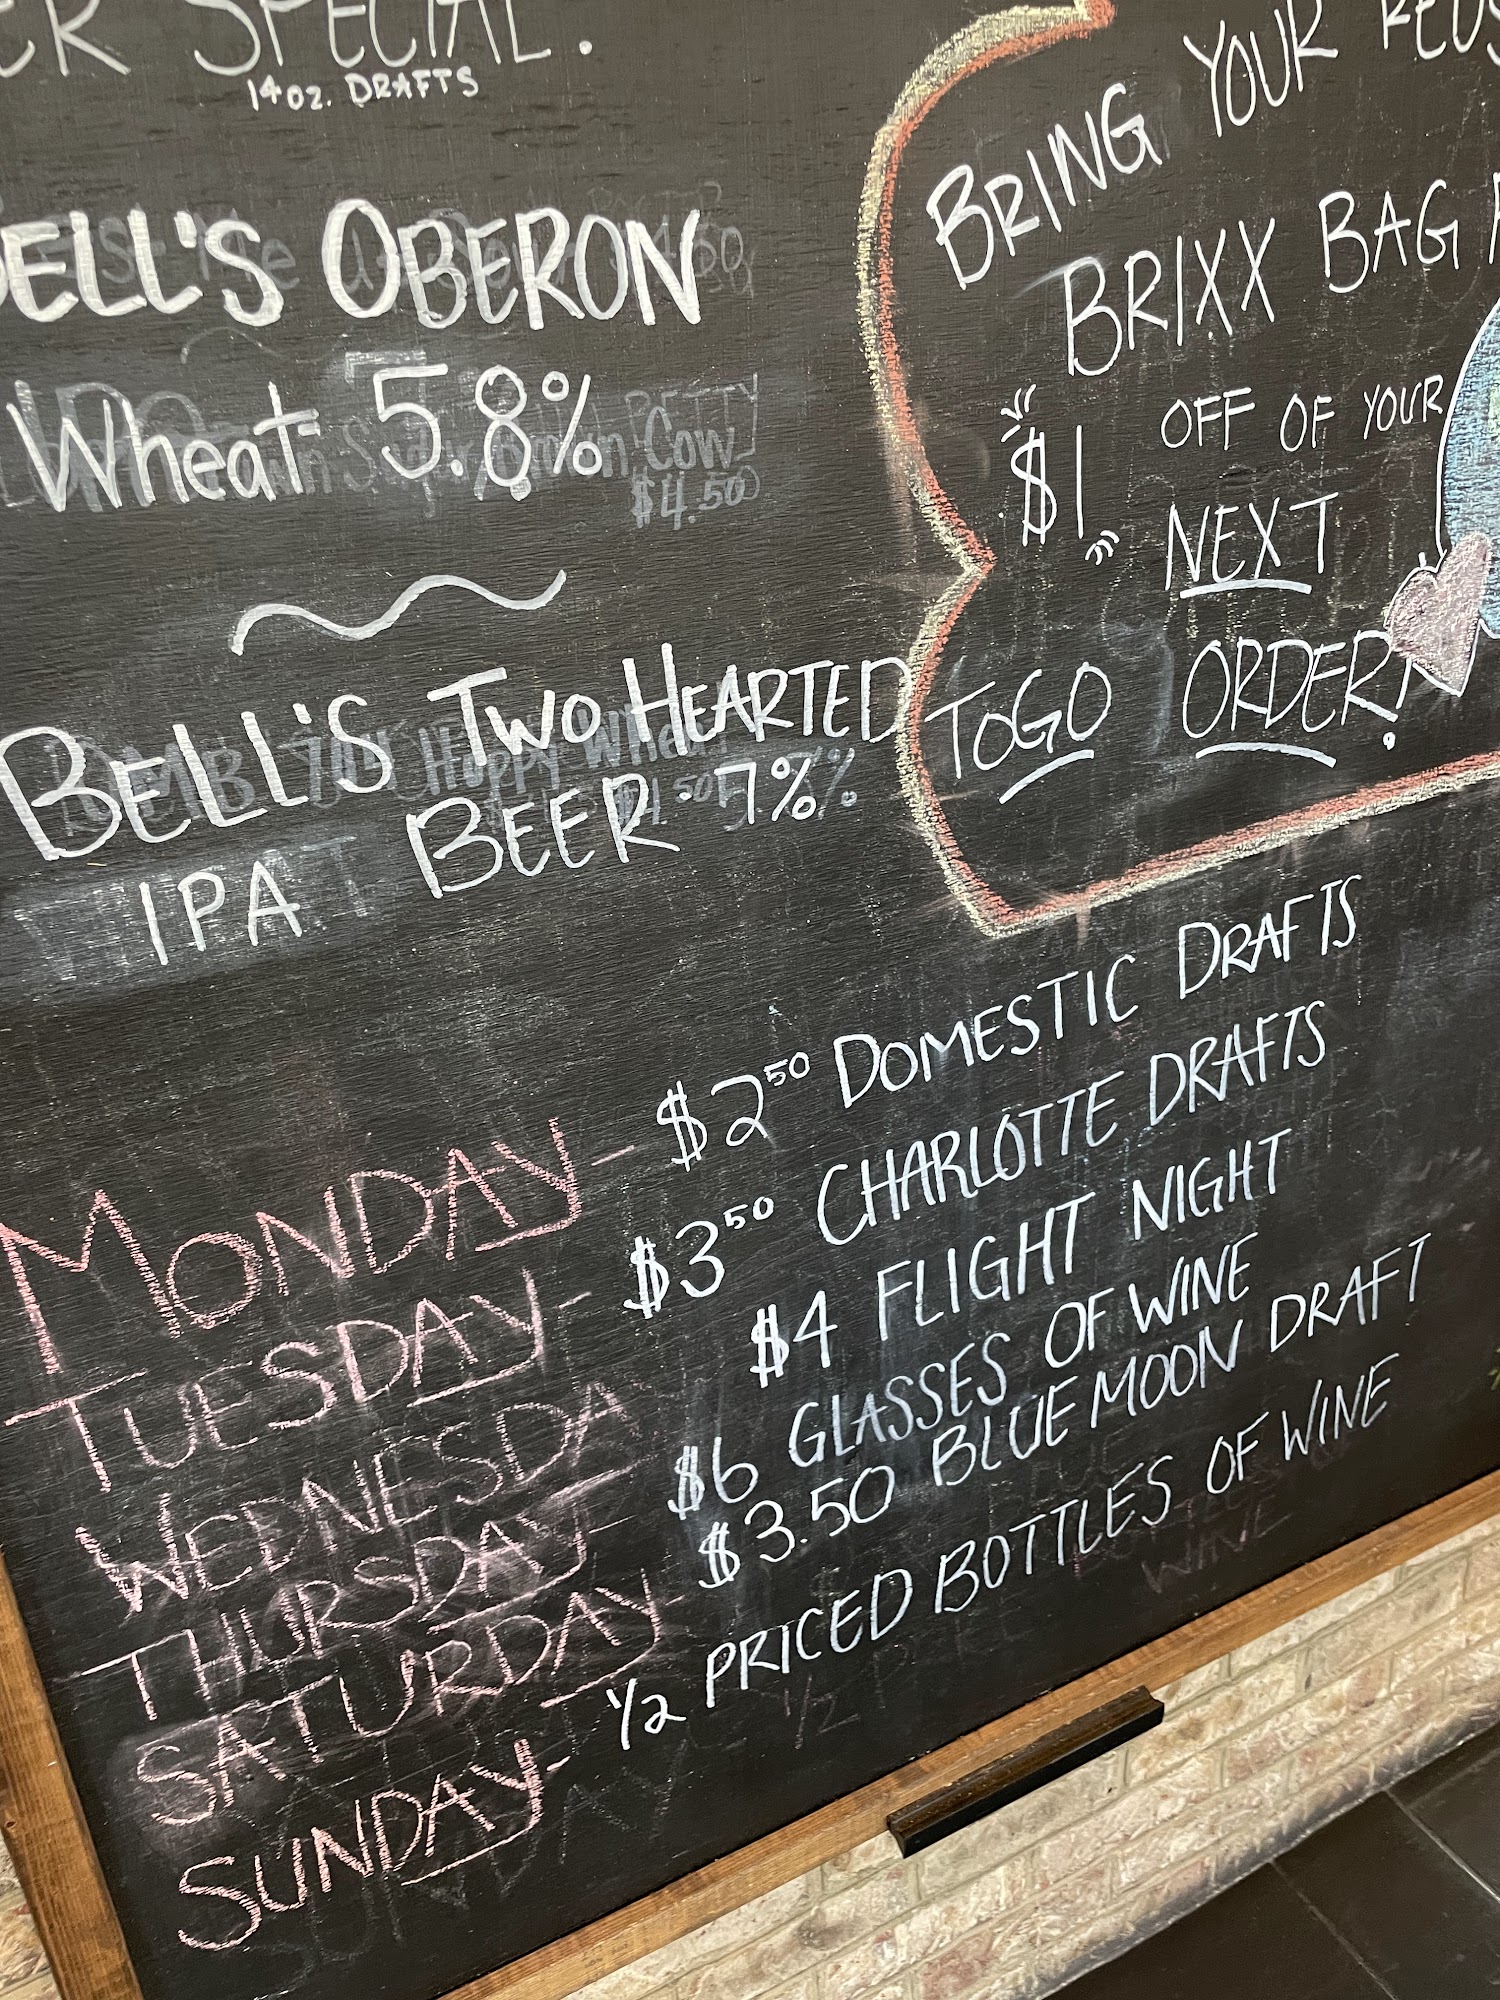 ER SPECIAL.
14 oz. DRAFTS
BELL'S OBERON
Wheat 5.8%
BELL'S TWO HEARTED
IPA BEER 7%
BRING YOUR REUS
BRIXX BAG
$1 OFF OF YOUR
NEXT
TOGO ORDER!
MONDAY- $2.50 DOMESTIC DRAFTS
TUESDAY- $3.50 CHARLOTTE DRAFTS
WEDNESDA $4 FLIGHT NIGHT
THURSDAY- $6 GLASSES OF WINE
SATURDAY- $3.50 BLUE MOON DRAFT
SUNDAY- 1/2 PRICED BOTTLES OF WINE